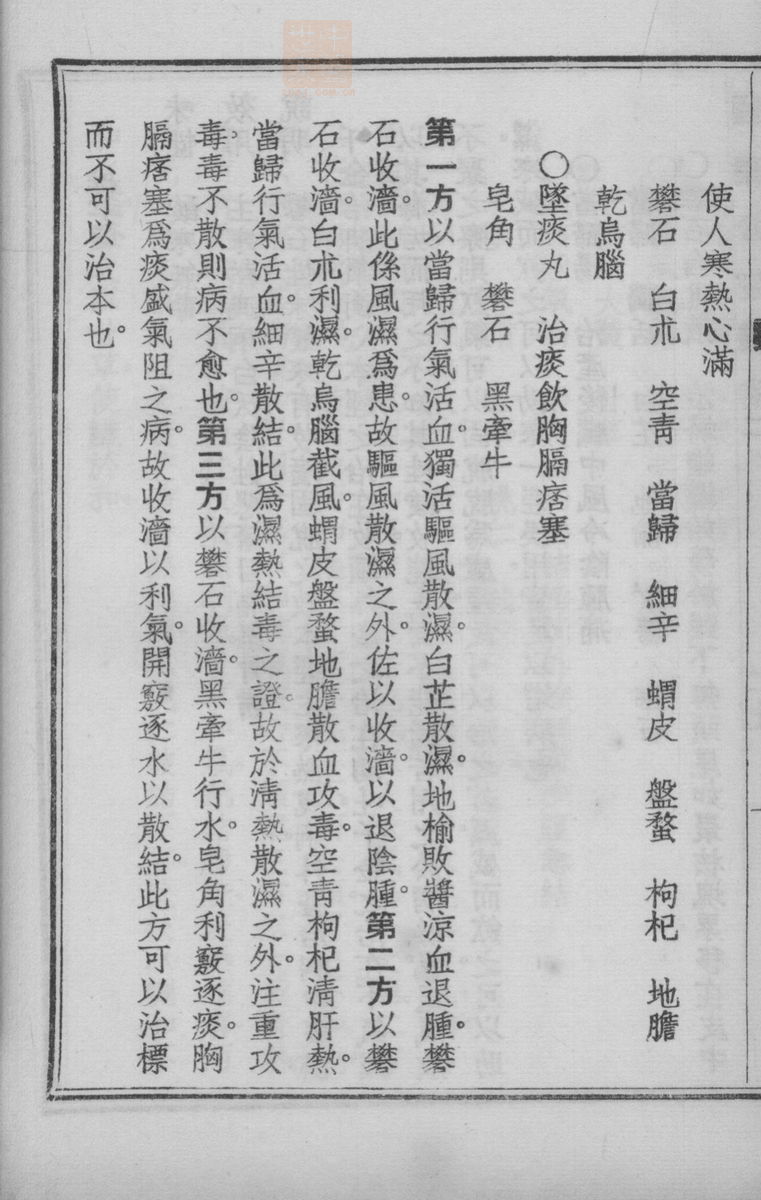 使人寒熱心滿
礬石　白朮　空青　當歸　細辛　蝟皮　盤蝥　枸杞　地膽
乾烏腦
〇墜痰丸　治痰飲胸膈痞塞
皂角　礬石　黑牽牛
第一方以當歸行氣活血獨活驅風散濕。白芷散濕。地榆敗醬涼血退腫。礬
石收濇。此係風濕爲患。故驅風散濕之外。佐以收濇。以退陰腫。第二方以礬
石收濇。白朮利濕。乾烏腦截風。蝟皮盤蝥地膽散血攻毒。空青枸杞清肝熱。
當歸行氣活血。細辛散結。此爲濕熱結毒之證。故於清熱散濕之外。注重攻
毒。毒不散則病不愈也。第三方以礬石收濇。黑牽牛行水。皂角利竅逐痰。胸
膈痞塞爲痰盛氣阻之病。故收濇以利氣。開竅逐水以散結。此方可以治標
而不可以治本也。